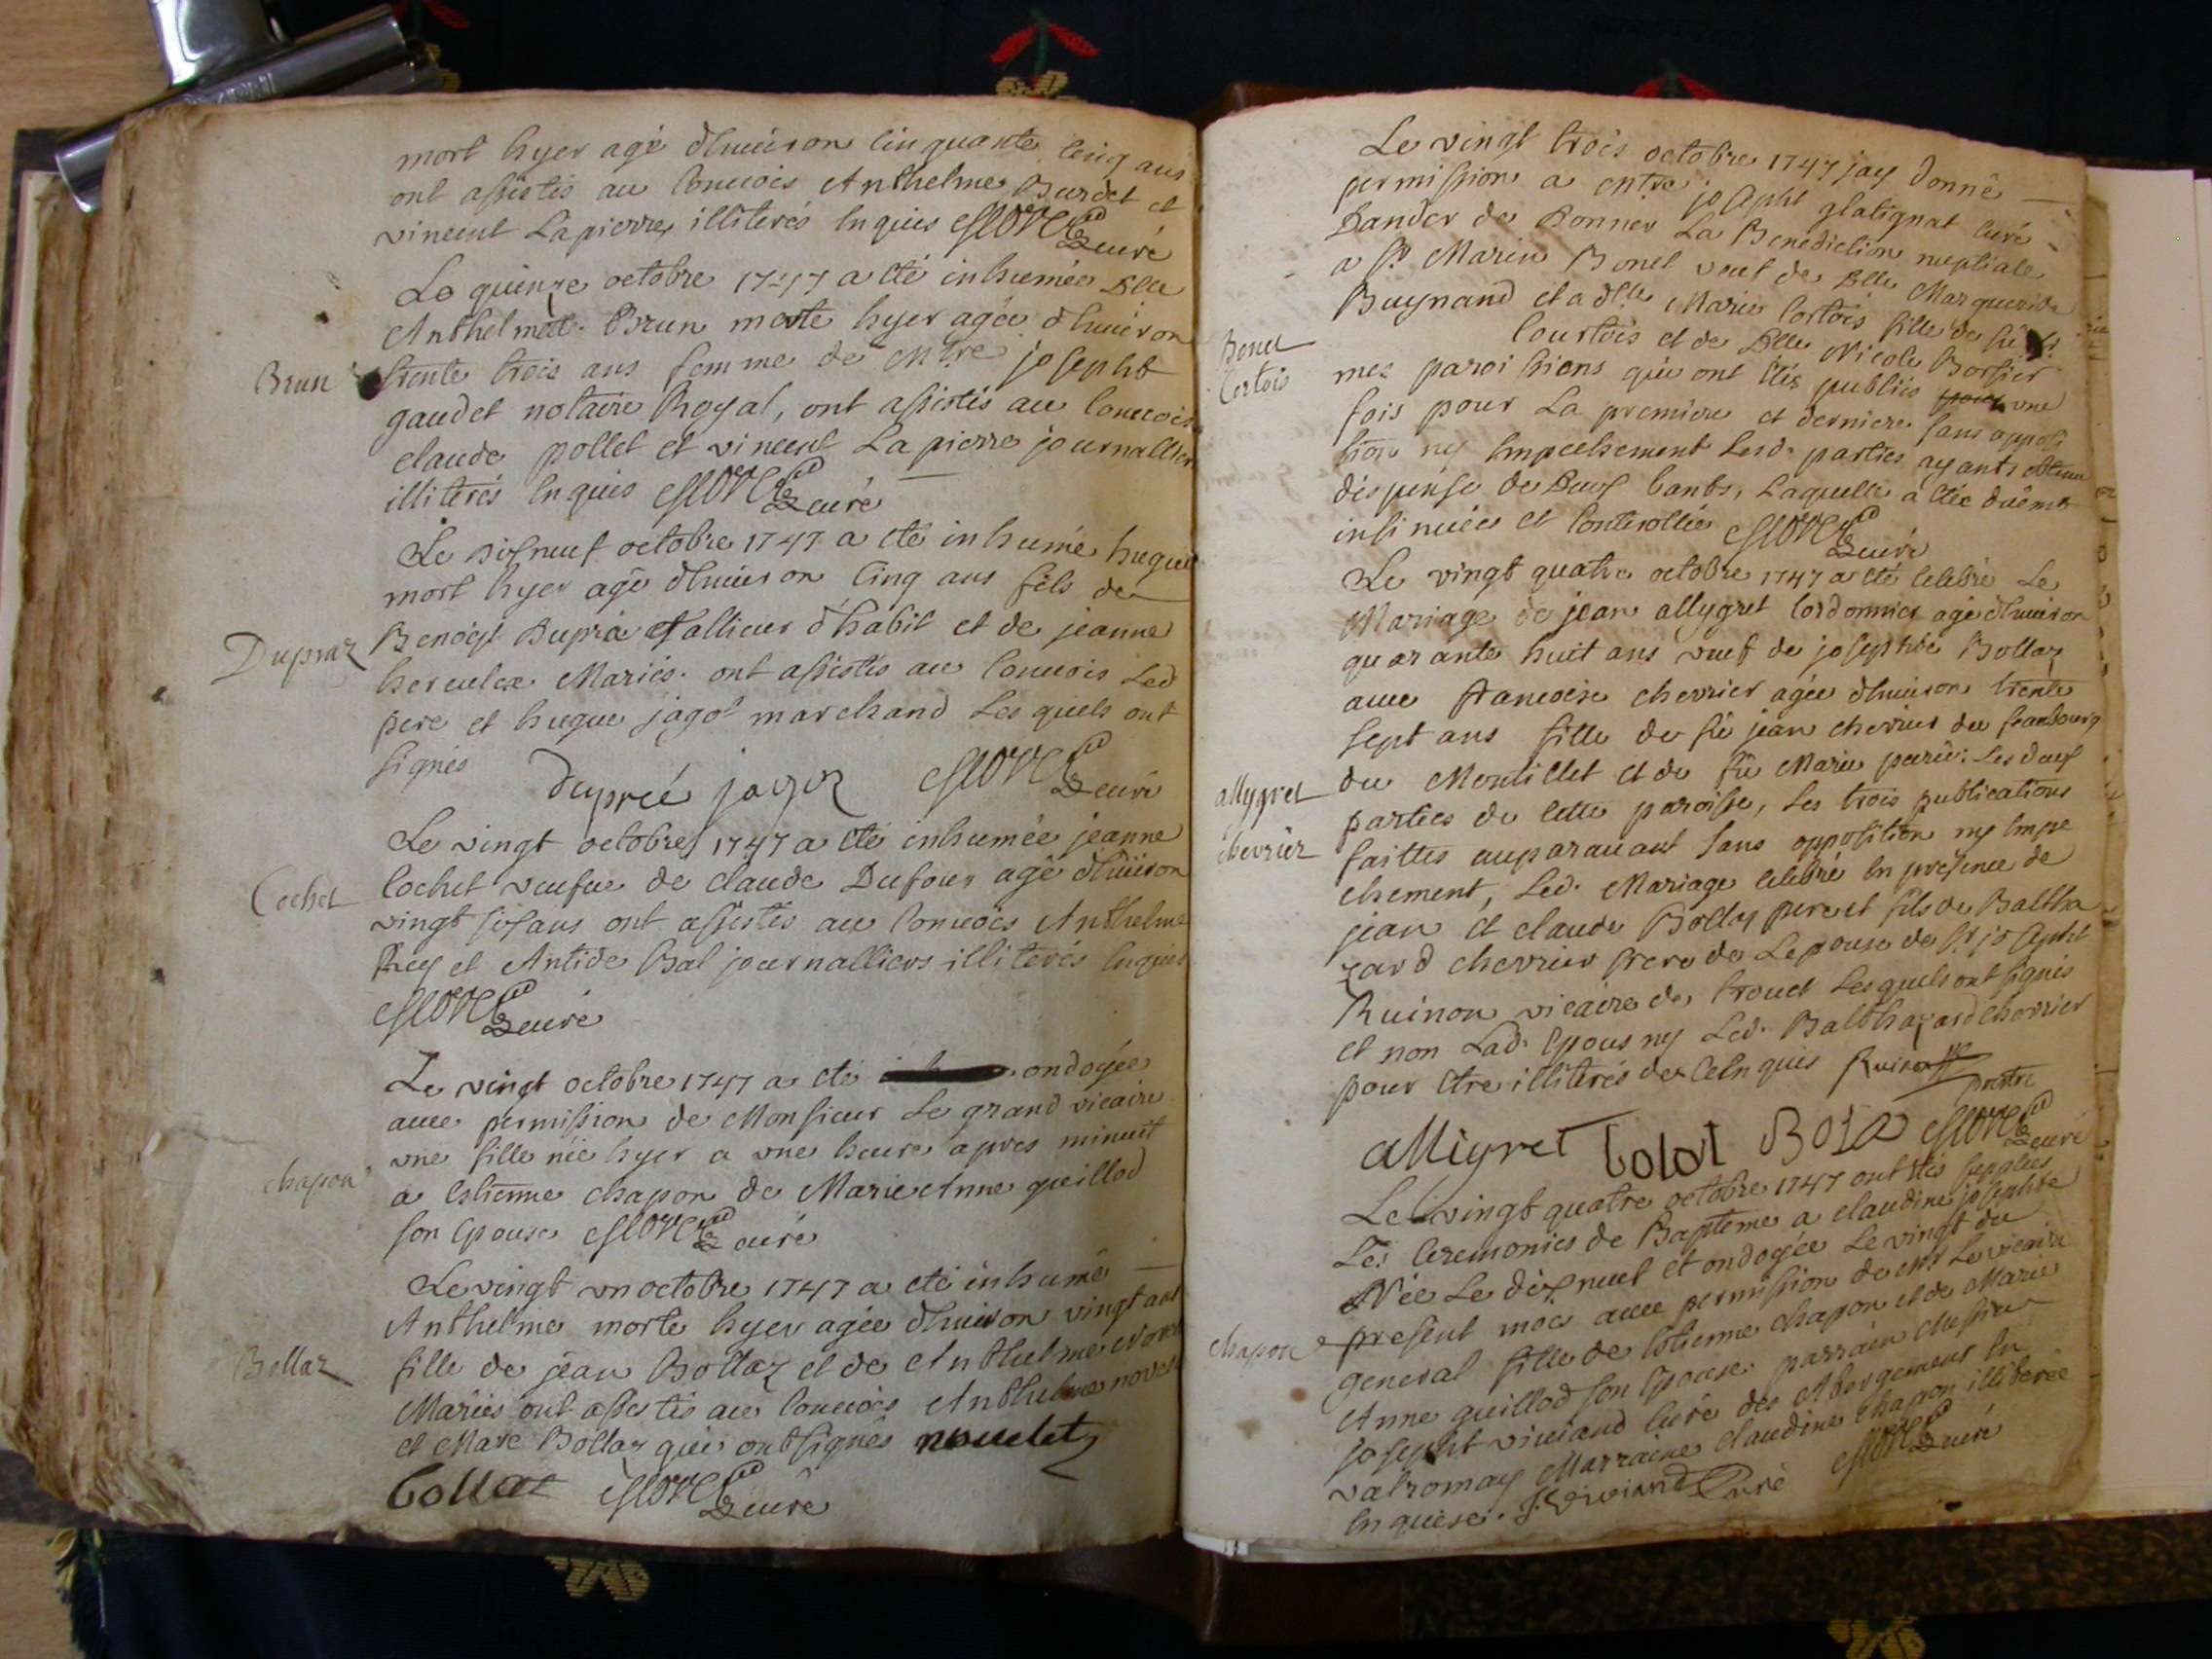 mort hyer agé d'huiron cinquante cinq ans
ont assistés au convois Anthelme Burdet et
vincent Lapierre illiterés enquis curé
Le quinze octobre 1747 a eté inhumée Dlle
Anthelmete Brun morte hyer agée d'huiron
Brun
trente trois ans femme de Mtre josepht
gaudet notaire Royal, ont assistés au convois
claude pollet et vincent Lapierre journallier
illiterés enquis curé
Le disneuf octobre 1747 a eté inhumé hugue
mort hyer agé d'huiron cinq ans fils de
Dupraz
Benoist Dupra tallieur d'habit et de jeanne
herculex Mariés. ont assistés au convois Led
pere et hugue jagot marchand Les quels ont
signés
dupréé jagoz curé
Le vingt octobre 1747 a eté inhumée jeanne
Cochet
Cochet veufue de claude Dufour agé d'huiron
vingt six ans ont assistés au convois Anthelme
Rey et Antide Bal journalliers illiterés enquis
curé
Le vingt octobre 1747 a eté ondogée
auec permission de Monsieur Le grand vicaire
une fille née hyer a une heure apres minuit
chapon
a Estienne chapon de Marie Anne guillod
son Epouse curé
Le vingt un octobre 1747 a eté inhumé
Anthelme morte hyer agée d'huiron vingt ans
Bollaz
fille de jean Bollaz et de Anthelme
Mariés ont assistés au convois Anthelme
et Marc Bollaz qui ont signés nouuelet
Bollaz curé
Le vingt trois octobre 1747 jay donné
permission a Mtre josepht glatignat curé
D'ander de Donner La Benediction nuptiale
a Sr Marin Bonet veuf de Dlle Marguerite
Buynand et a dlle Marie Cortois fille de fû Sr
Bonet
Cortois
Courtois et de Dlle Nicole Borsier
mes paroissiens qui ont étés publiés une
fois pour La premiere et derniere sans opposi
tion ny Empechement Lesd. parties ayants obtenu
dispense de Deux bants, Laquelle a étée duëmt
insinuée et Controllée curé
Le vingt quatre octobre 1747 a eté Celebré Le
Mariage de jean allygret Cordonnier agé d'huiron
quarante huit ans veuf de josephte Bollaz
auec francoise chevrier agée d'huiron trente
sept ans fille de fû jean chevrier du feaubourg
allygret
du Montillet et de fû Marie Les deux
chevrier
parties de cette paroisse, Les trois publications
faittes auparauant sans opposition ny Empe
chement, Led. Mariage Celebré En presence de
jean et claude Bollaz pere et fils de Baltha
zard chevrier frere de Lepouse de Sr josepht
Ruinon vicaire de trouet Lesquels ont signés
et non Lad. Epous ny Led. Balthazard chevrier
pour etre illiterés de Ce Enquis Ruinon pretre
alligret Bolat curé
Le vingt quatre octobre 1747 ont étés supplées
Les Ceremonies de Bapteme a claudine josephte
Née Le dix neuf et ondogée Le vingt du
chapon
present mois auec permission de Mr Le vicaire
general fille de Estienne chapon et de Marie
Anne guillod son Epouse. parrain Messire
josepht viuiand Curé des Abergement En
valromay Marraine claudine chapon illiterée
Enquise. J. Viviand Curé curé